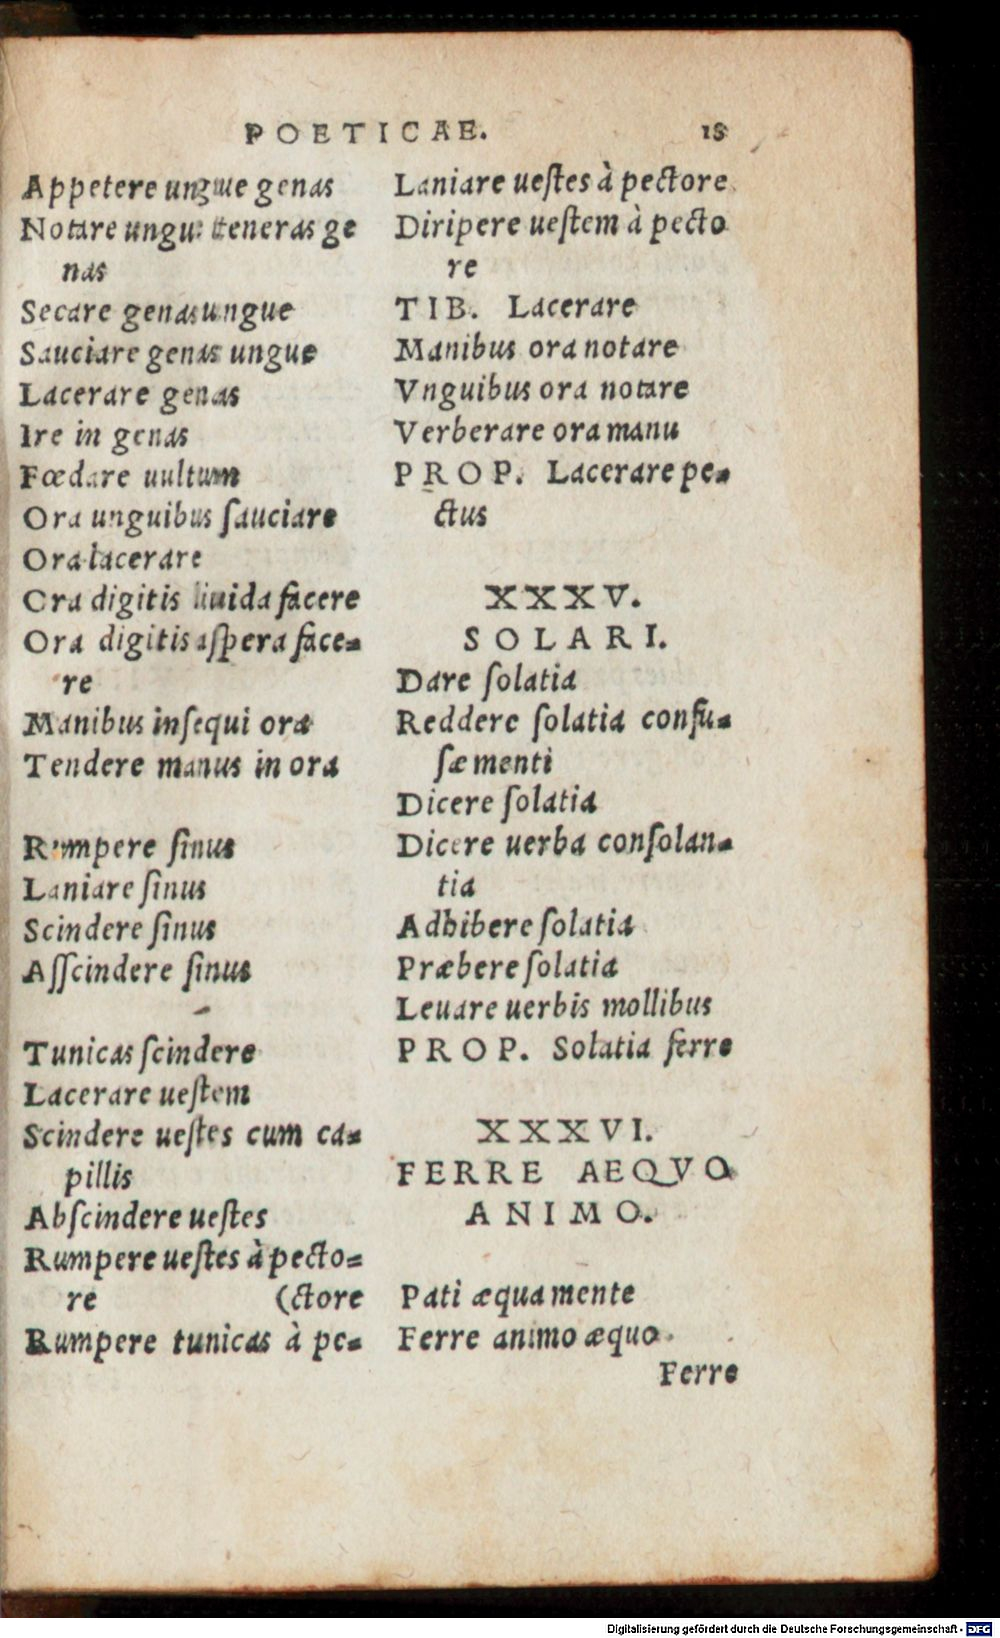 POETICAE. 15
Appetere ungue genas
Notare ungui teneras ge
nas
Secare genas ungue
Sauciare genas ungue
Lacerare genas
Ire in genas
Fœdare uultum
Ora unguibus ſauciare
Ora lacerare
Ora digitis liuida facere
Ora digitis aſpera face-
re
Manibus inſequi ora
Tendere manus in ora
Rumpere ſinus
Laniare ſinus
Scindere ſinus
Aſſcindere ſinus
Tunicas ſcindere
Lacerare ueſtem
Scindere ueſtes cum ca-
pillis
Abſcindere ueſtes
Rumpere ueſtes à pecto-
re (ctore
Rumpere tunicas à pe-
Laniare ueſtes à pectore
Diripere ueſtem à pecto
re
TIB. Lacerare
Manibus ora notare
Vnguibus ora notare
Verberare ora manu
PROP. Lacerare pe-
ctus
XXXV.
SOLARI.
Dare ſolatia
Reddere ſolatia confu-
ſæ menti
Dicere ſolatia
Dicere uerba conſolan-
tia
Adhibere ſolatia
Præbere ſolatia
Leuare uerbis mollibus
PROP. Solatia ferre
XXXVI.
FERRE AEQVO
ANIMO.
Pati æqua mente
Ferre animo æquo.
Ferre
Digitalisierung gefördert durch die Deutsche Forschungsgemeinschaft - DFG